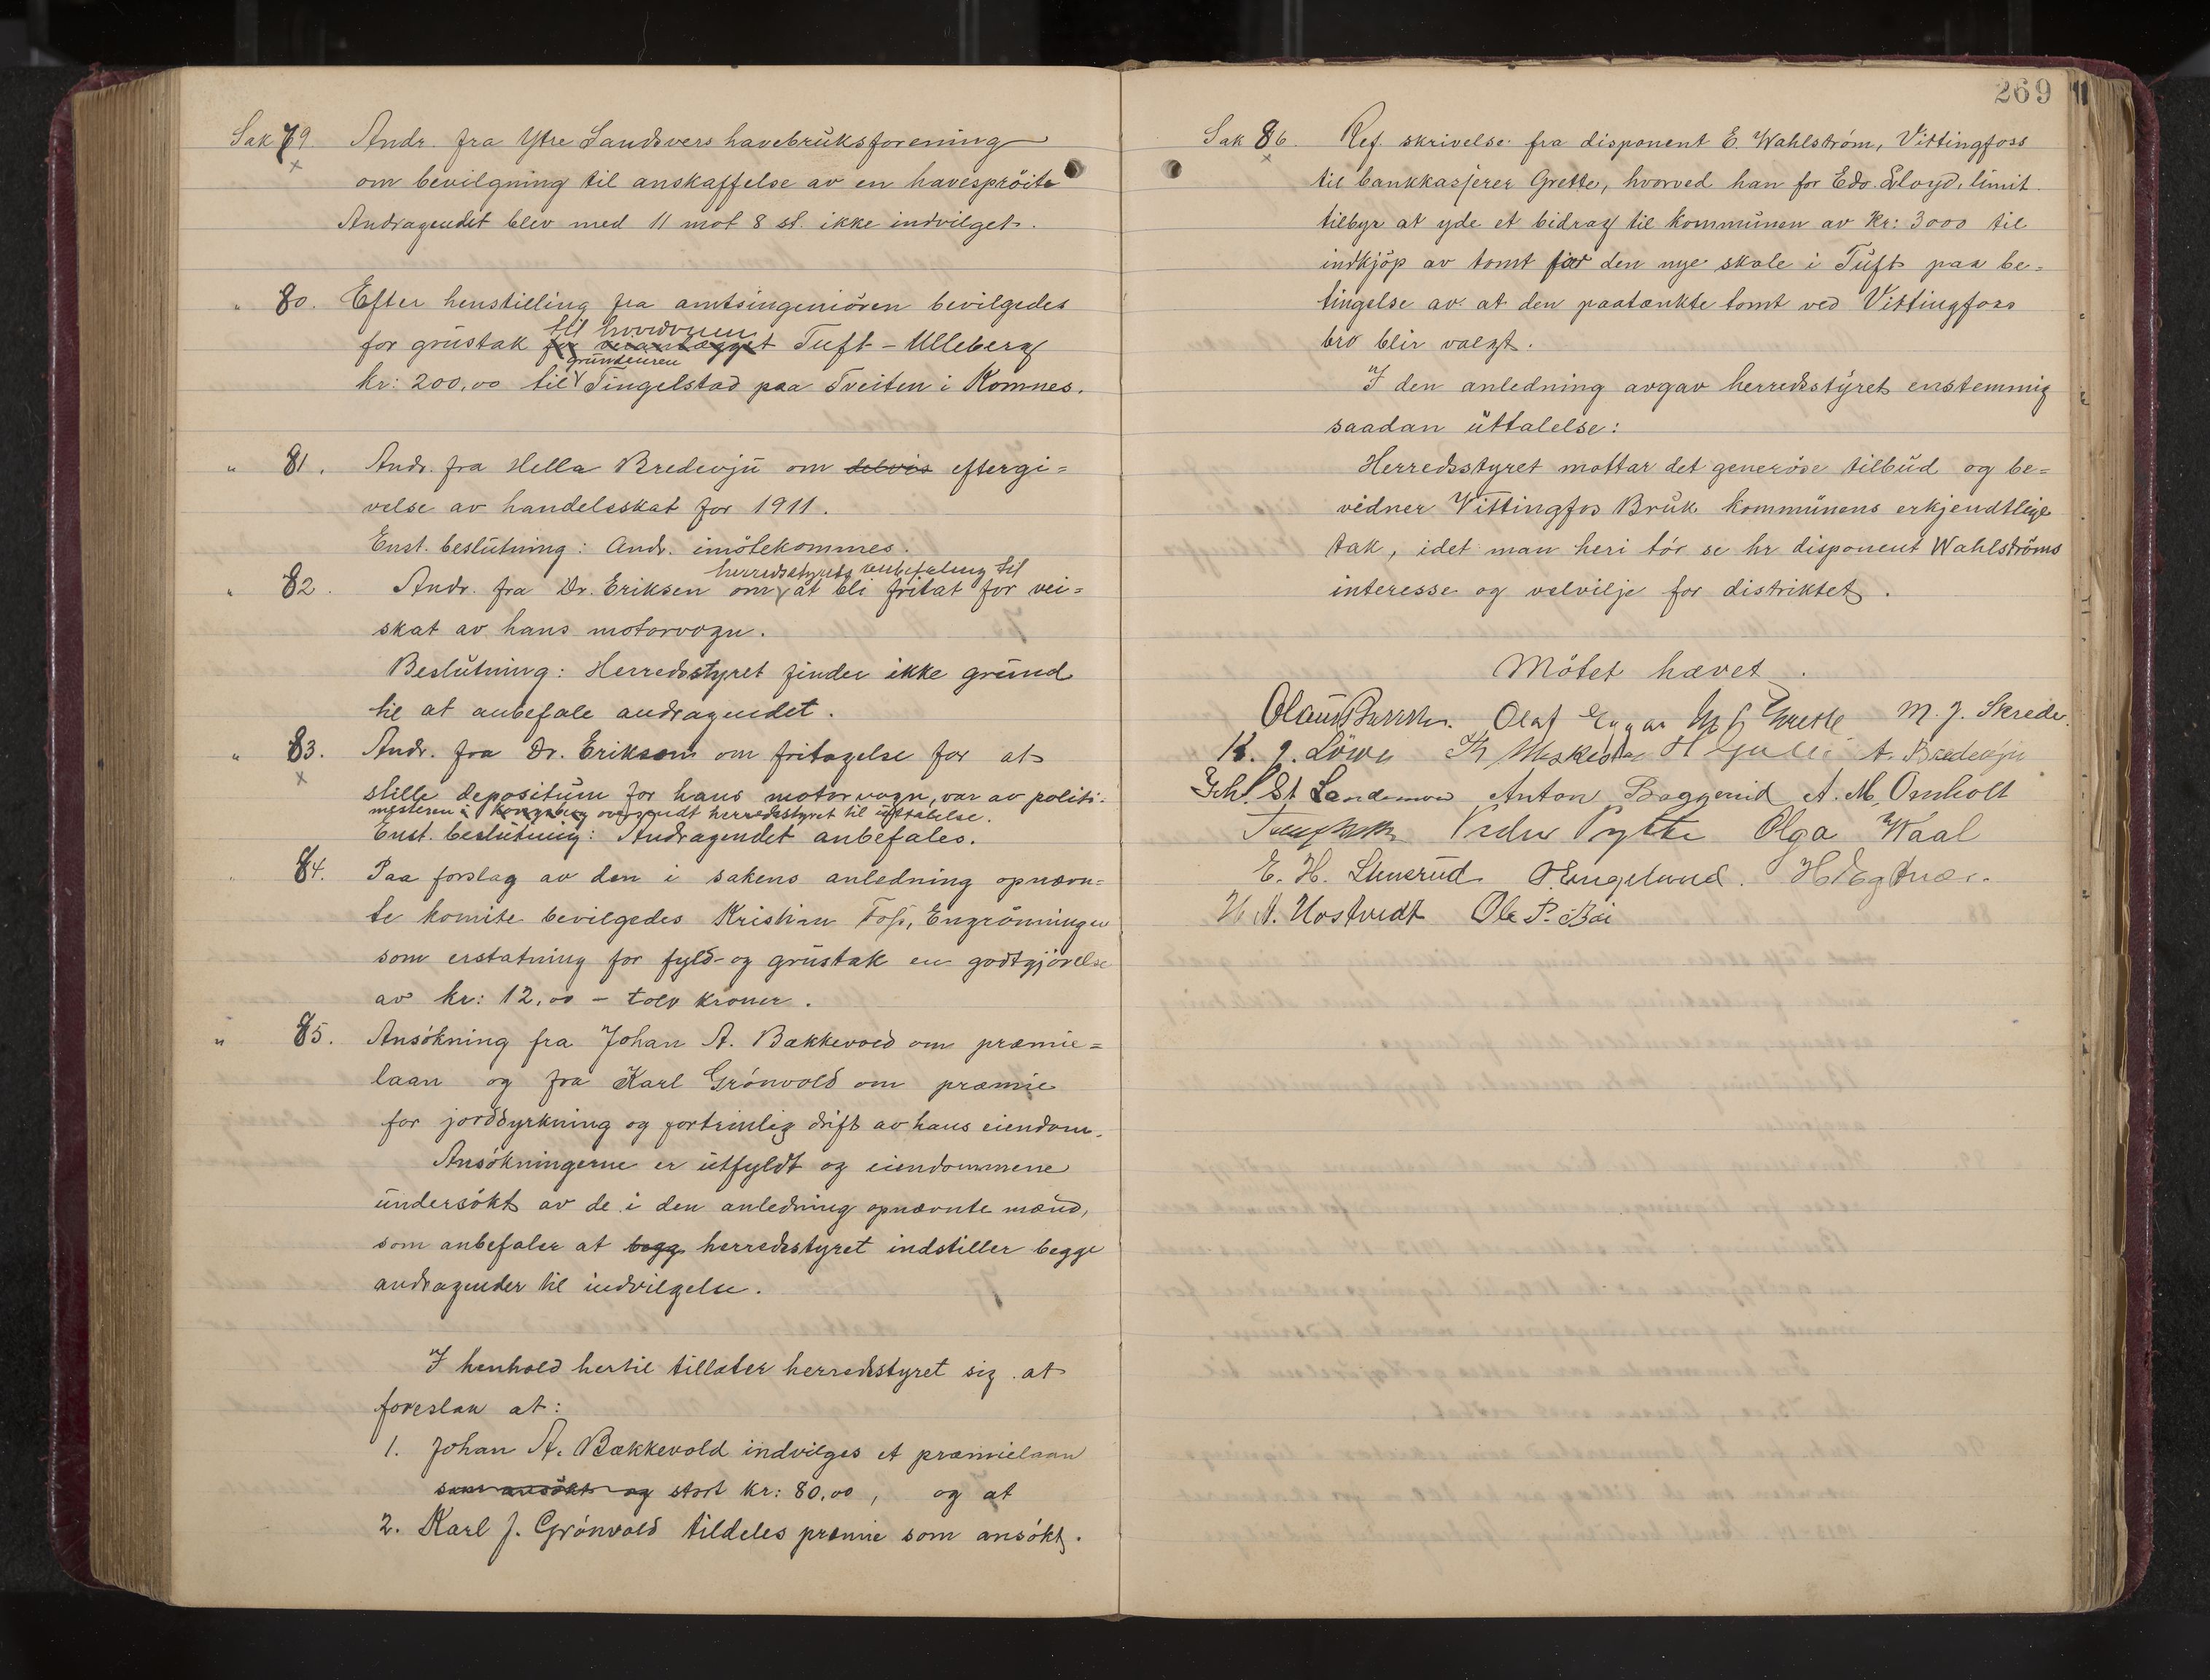 Sak 79. Andr. fra Ytre Sandsvers havebruksforening
om bevilgning til anskaffelse av en havespröite
Andragendet blev med 11 mot 8 st. ikke indvilget.
" 80. Efter henstilling fra amtsingeniören bevilgedes
til hovedveien
for grustak for veianlægget Tuft - Ulleberg
grundeieren
kr: 200,00 til Tingelstad paa Tveiten i Komnes.
" 81. Andr. fra Hella Bredevju om delvis eftergi=
velse av handelsskat for 1911.
Enst. beslutning: Andr. imötekommes.
herredsstyrets anbefaling til
" 82. Andr. fra Dr. Eriksen om at bli fritat for vei=
skat av hans motorvogn.
Beslutning: Herredsstyret finder ikke grund
til at anbefale andragendet.
" 83. Andr. fra Dr. Eriksen om fritagelse for at
stille depositum for hans motorvogn, var av politi-
mesteren i Kongsberg oversendt herredsstyret til uttalelse.
Enst. beslutning: Andragendet anbefales.
" 84. Paa forslag av den i sakens anledning opnævn=
te komite bevilgedes Kristian Foss, Engrönningen
som erstatning for fyld- og grustak en godtgjörelse
av kr: 12,00 - tolv kroner.
" 85. Ansökning fra Johan A. Bakkevold om præmie=
laan og fra Karl Grönvold om præmie
for jorddyrkning og fortrinlig drift av hans eiendom.
Ansökningerne er utfyldt og eiendommene
undersökt av de i den anledning opnævnte mænd,
som anbefaler at begg herredsstyret indstiller begge
andragender til indvilgelse.
I henhold hertil tillater herredsstyret sig at
foreslaa at:
1. Johan A. Bakkevold indvilges et præmielaan
som ansökt og stort kr: 80,00, og at
2. Karl J. Grönvold tildeles præmie som ansökt.
269
Sak 86. Ref. skrivelse fra disponent E. Wahlström, Vittingfoss
til bankkasjerer Grette, hvorved han for Edv. Lloyd, limit.
tilbyr at yde et bidrag til kommunen av kr: 3000 til
indkjöp av tomt for den nye skole i Tuft paa be=
tingelse av at den paatænkte tomt ved Vittingfoss
bro blir valgt.
I den anledning avgav herredsstyret enstemmig
saadan uttalelse:
Herredsstyret mottar det generöse tilbud og be=
vidner Vittingfos Bruk kommunens erkjendtlige
tak, idet man heri tör se hr disponent Wahlströms
interesse og velvilje for distriktet.
Mötet hævet.
Olaus Olaf Grette M. J. Skreder.
K. J. Löwe Th A. Bredevju
St Landemoe Anton Baggerud A. M. Omholt
Peder Pytte Olga Waal
E. H. Stenerud O. Engelund.
H. A. Hostvedt Ole P. Böe